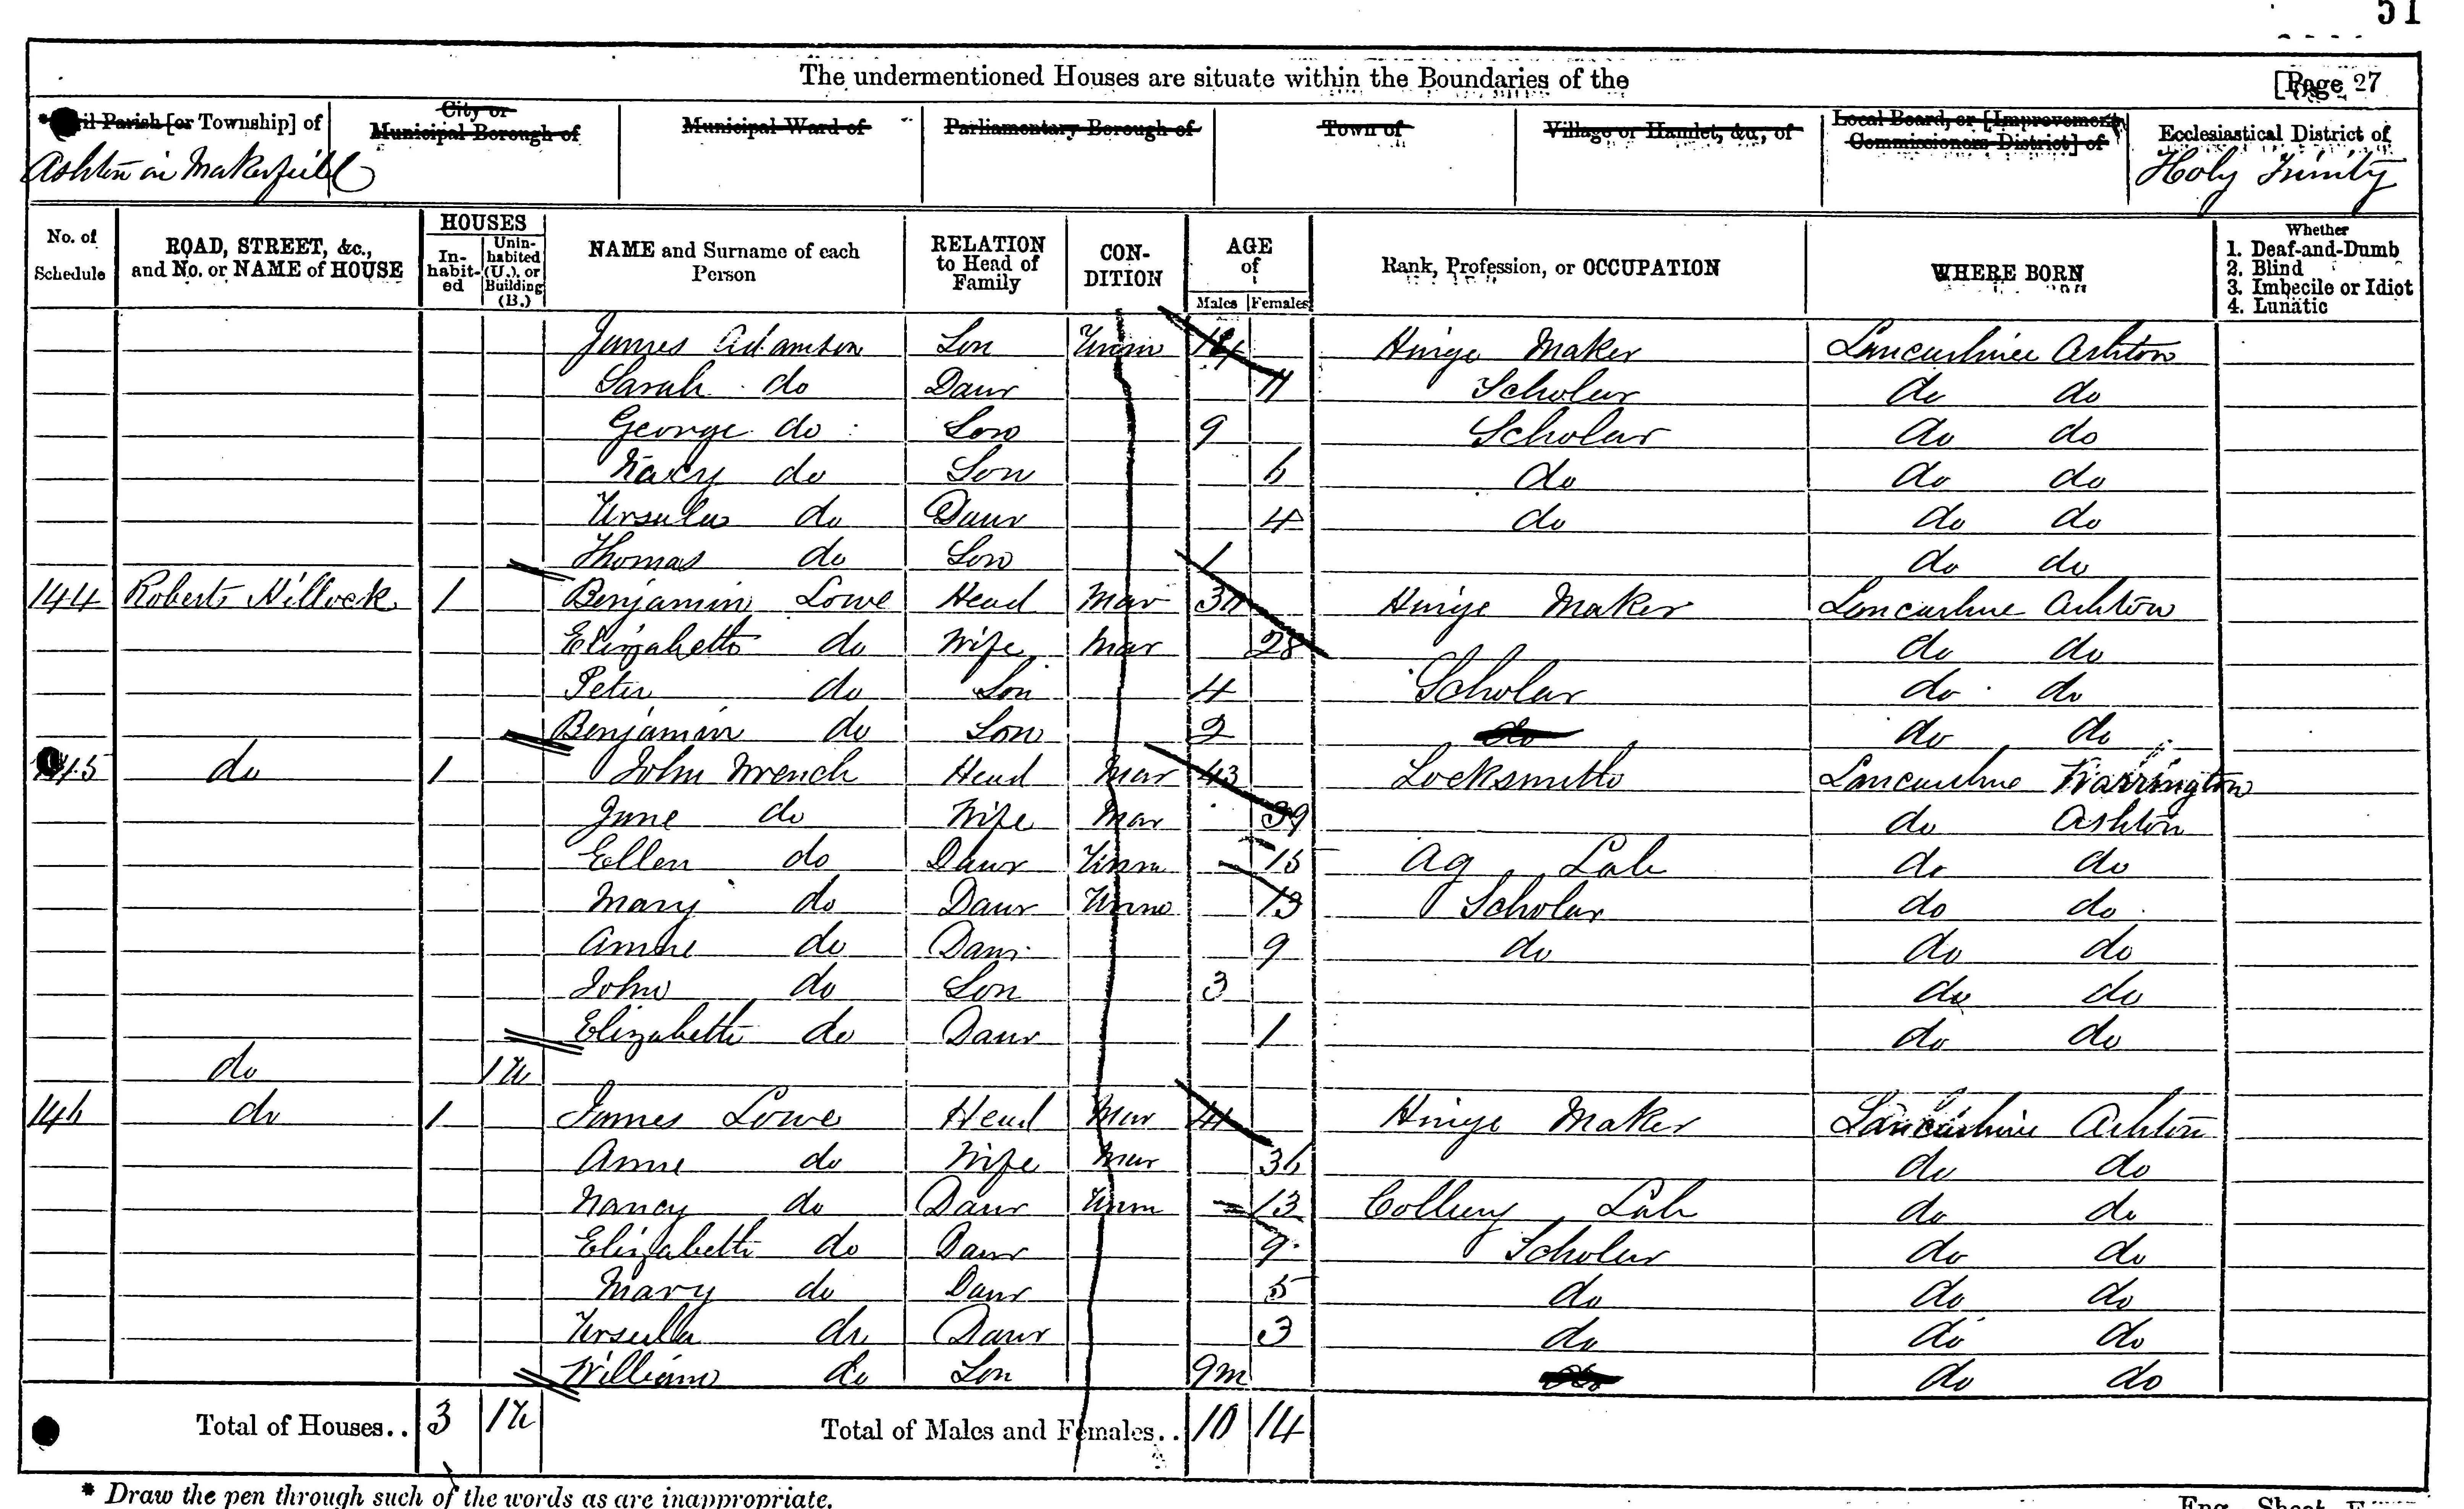 51
The undermentioned Houses are situate within the Boundaries of the [Page 27
* Civil Parish [or Township] of City or Municipal Borough of Municipal Ward of Parliamentary Borough of Town of Village or Hamlet, &c., of Local Board, or [Improvement Commissioners District] of Ecclesiastical District of
Ashton in Makerfield Holy Trinity
No. of Schedule ROAD, STREET, &c., and No. or NAME of HOUSE HOUSES Inhabited Uninhabited (U.), or Building (B.) NAME and Surname of each Person RELATION to Head of Family CONDITION AGE of Males Females Rank, Profession, or OCCUPATION WHERE BORN Whether 1. Deaf-and-Dumb 2. Blind 3. Imbecile or Idiot 4. Lunatic
James Adamson Son Unm 14 Hinge Maker Lancashire Ashton
Sarah do Daur 11 Scholar do do
George do Son 9 Scholar do do
Nancy do Son 6 do do do
Ursula do Daur 4 do do do
Thomas do Son 1 do do
144 Roberts Hillock 1 Benjamin Lowe Head Mar Hinge Maker Lancashire Ashton
Elizabeth do Wife Mar 28 do do
Peter do Son 4 Scholar do do
Benjamin do Son 2 do do do
145 do 1 John Wrench Head Mar 43 Locksmith Lancashire Warrington
Jane do Wife Mar 39 do Ashton
Ellen do Daur Unm 15 Ag Lab do do
Mary do Daur Unm 13 Scholar do do
Annie do Daur 9 do do do
John do Son 3 do do
Elizabeth do Daur 1 do do
do 1U
146 do 1 James Lowe Head Mar 41 Hinge Maker Lancashire Ashton
Anne do Wife Mar 36 do do
Nancy do Daur Unm 13 Colliery Lab do do
Elizabeth do Daur 9 Scholar do do
Mary do Daur 5 do do do
Ursula do Daur 3 do do do
William do Son 9m do do do
Total of Houses.. 3 1U Total of Males and Females.. 10 14
* Draw the pen through such of the words as are inappropriate.
Eng.—Sheet